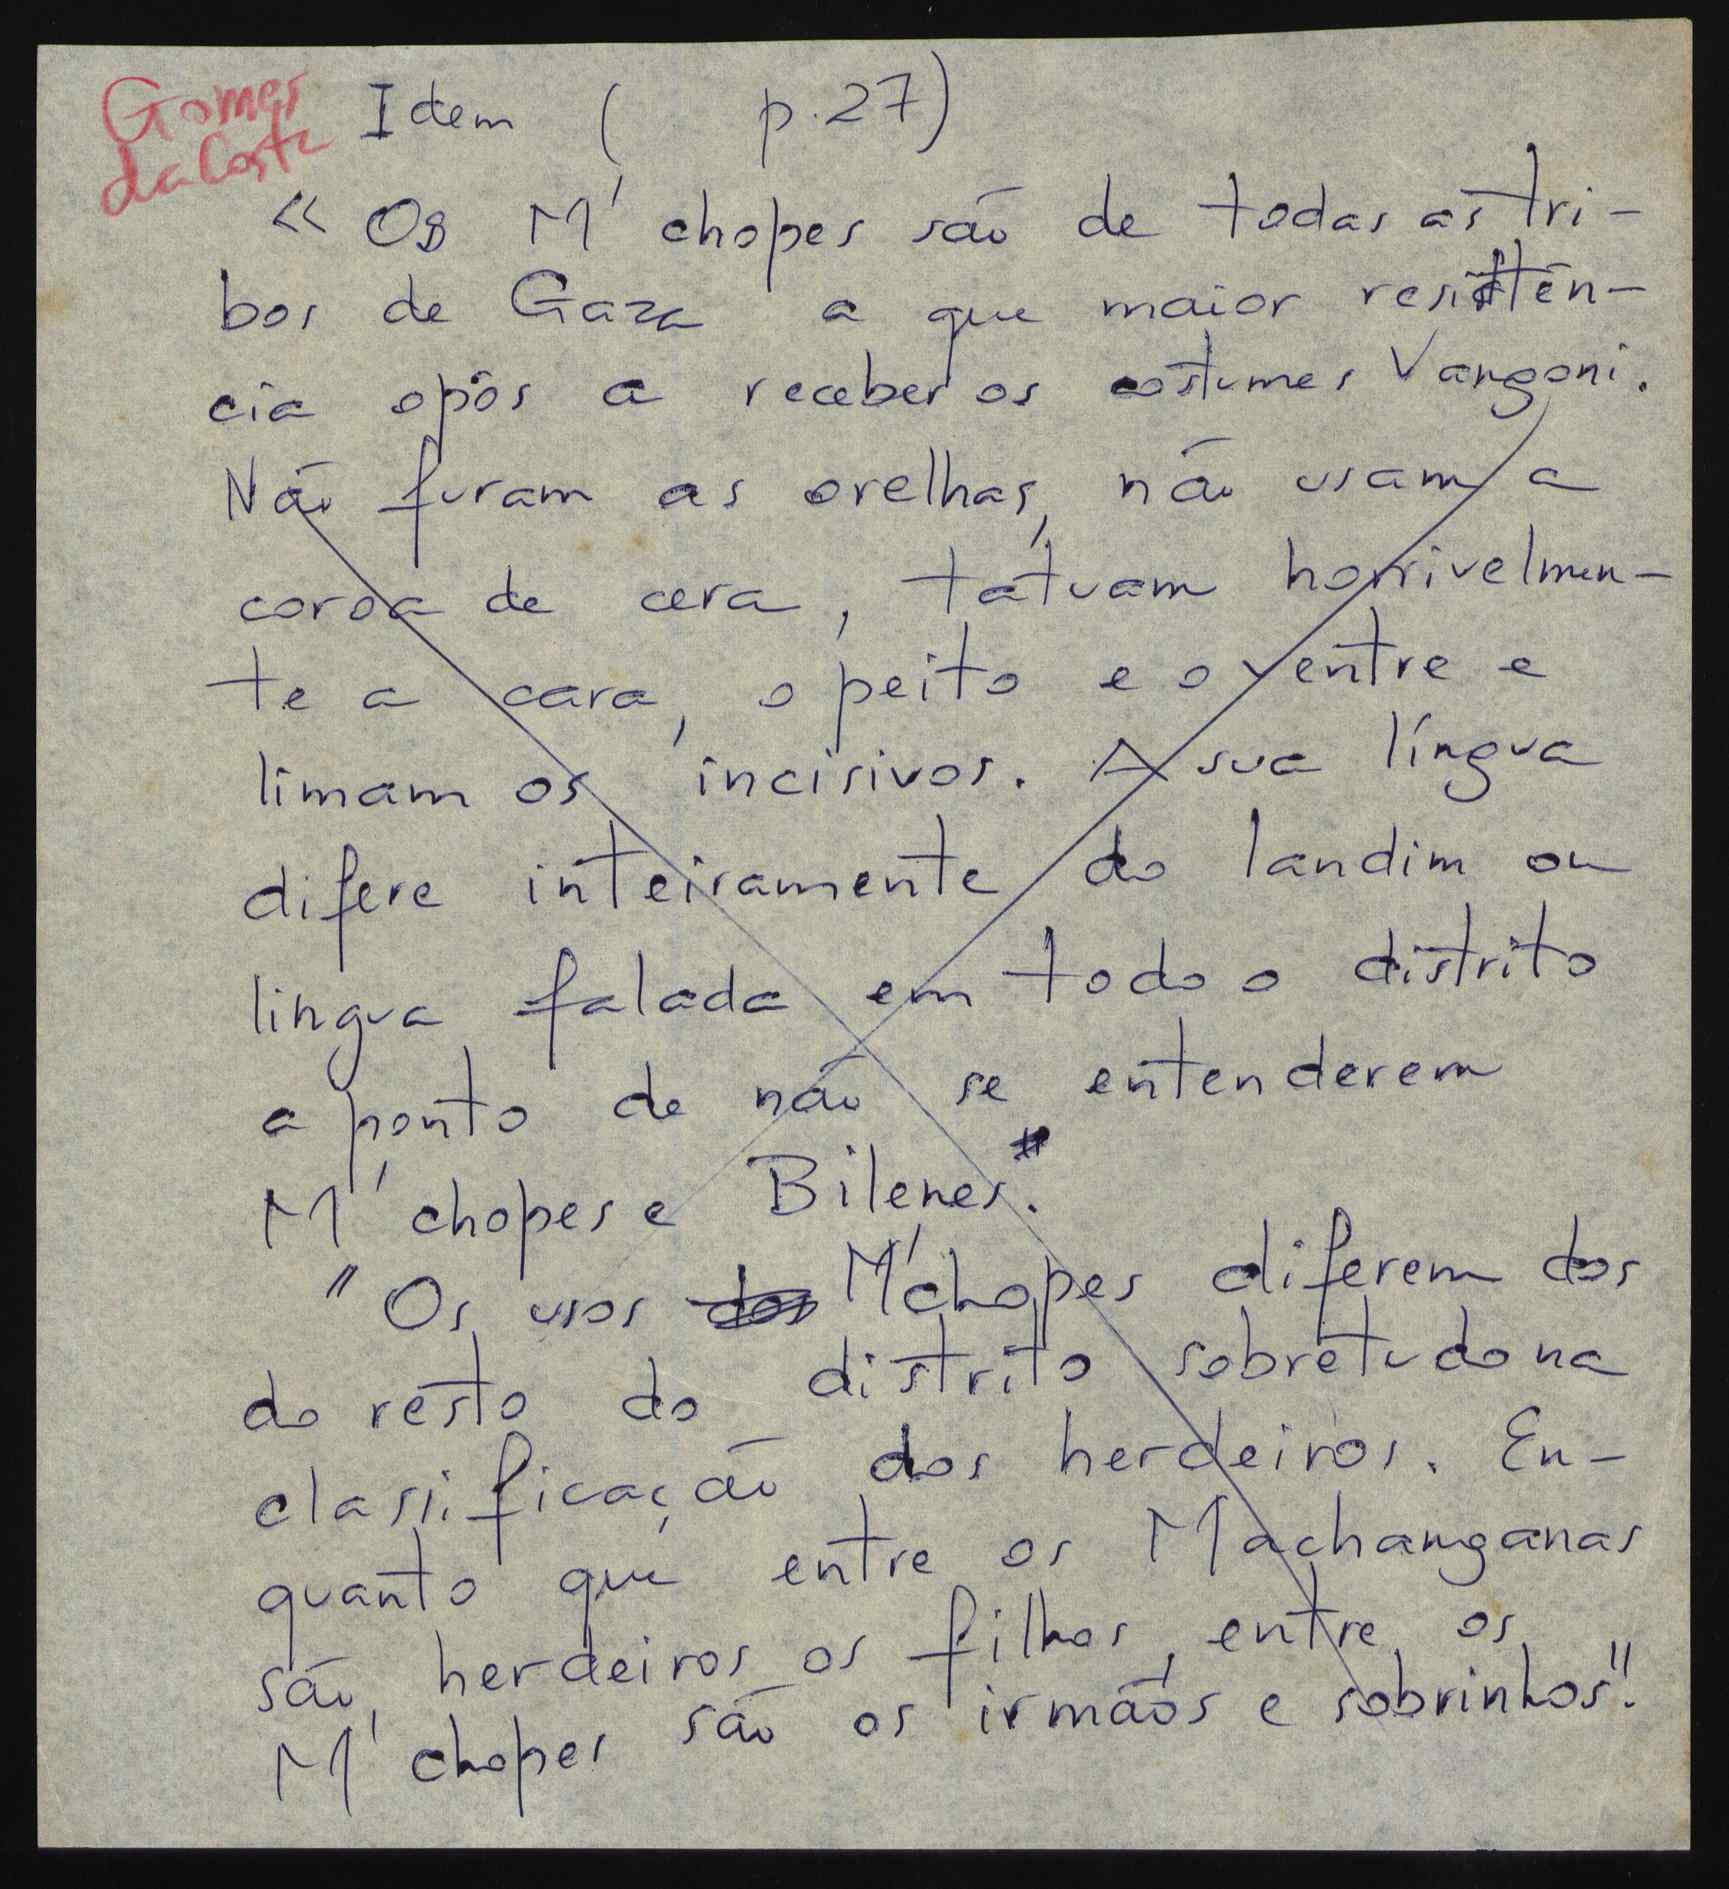 Gomes
da Costa
Idem ( p. 27)
« Os M'chopes são de todas as tri-
bos de Gaza a que maior resistên-
cia opôs a receber os costumes Vangoni.
Não furam as orelhas, não usam a
coroa de cera, tatuam horrivelmen-
te a cara, o peito e o ventre e
limam os incisivos. A sua língua
difere inteiramente do landim ou
lingua falada em todo o distrito
a ponto de não se entenderem
M'chopes e Bilenes."
"Os usos dos M'chopes diferem dos
do resto do distrito sobretudo na
classificação dos herdeiros. En-
quanto que entre os Machanganas
são herdeiros os filhos, entre os
M'chopes são os irmãos e sobrinhos".